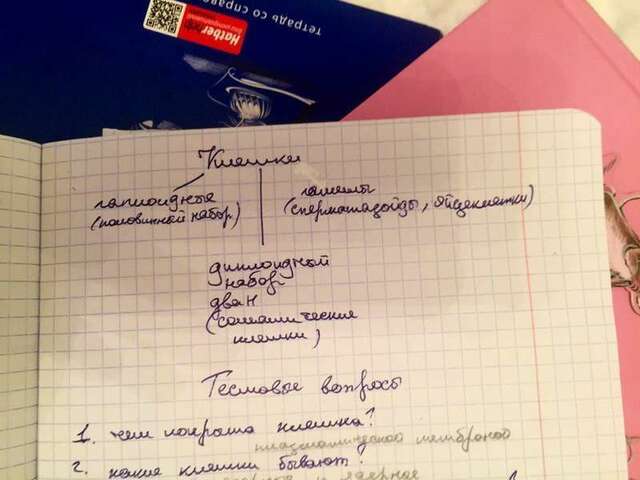 тетрадь со справо
Hatber
Клетки
гаплоидные
(половинный набор)
гаметы
(сперматозойды, яйцеклетки)
диплоидный
набор
два н
(соматические
клетки)
Тестовые вопросы
1. чем покрыта клетка?
плазматической мембраной
2. какие клетки бывают?
и ядерное